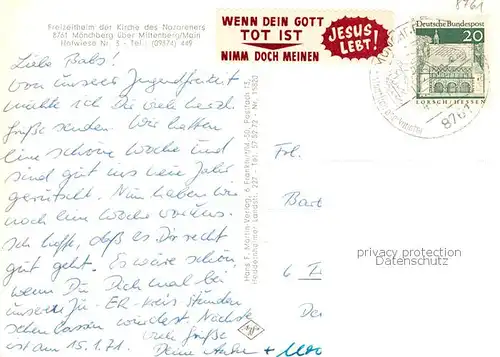 Freizeitheim der Kirche des Nazareners
8761 Mönchberg über Miltenberg/Main
Hofwiese Nr. 3 - Tel. (09374) 449
8761
WENN DEIN GOTT
TOT IST
NIMM DOCH MEINEN
JESUS
LEBT!
Deutsche Bundespost
20
LORSCH/HESSEN
8761
Liebe Babs!
Von unserer Jugendfreizeit
möchte ich Dir viele herzl.
Grüße senden. Wir hatten
eine schöne Woche und
sind gut ins neue Jahr
gerutscht. Nun haben wir
noch eine Woche vor uns.
Ich hoffe, daß es Dir recht
gut geht. Es wäre schön
wenn Du Dich mal bei
unseren ER-Kreis Stunden
sehen lassen würdest. Nächste
ist am 15.1.71. Viele Grüße
Deine +
Hans F. Martin-Verlag, 6 Frankfurt/M.-50, Postfach 13,
Heddernheimer Landstr. 227 - Tel. 57 92 72 - Nr. 15020
Frl.
Barb
6
privacy protection
Datenschutz